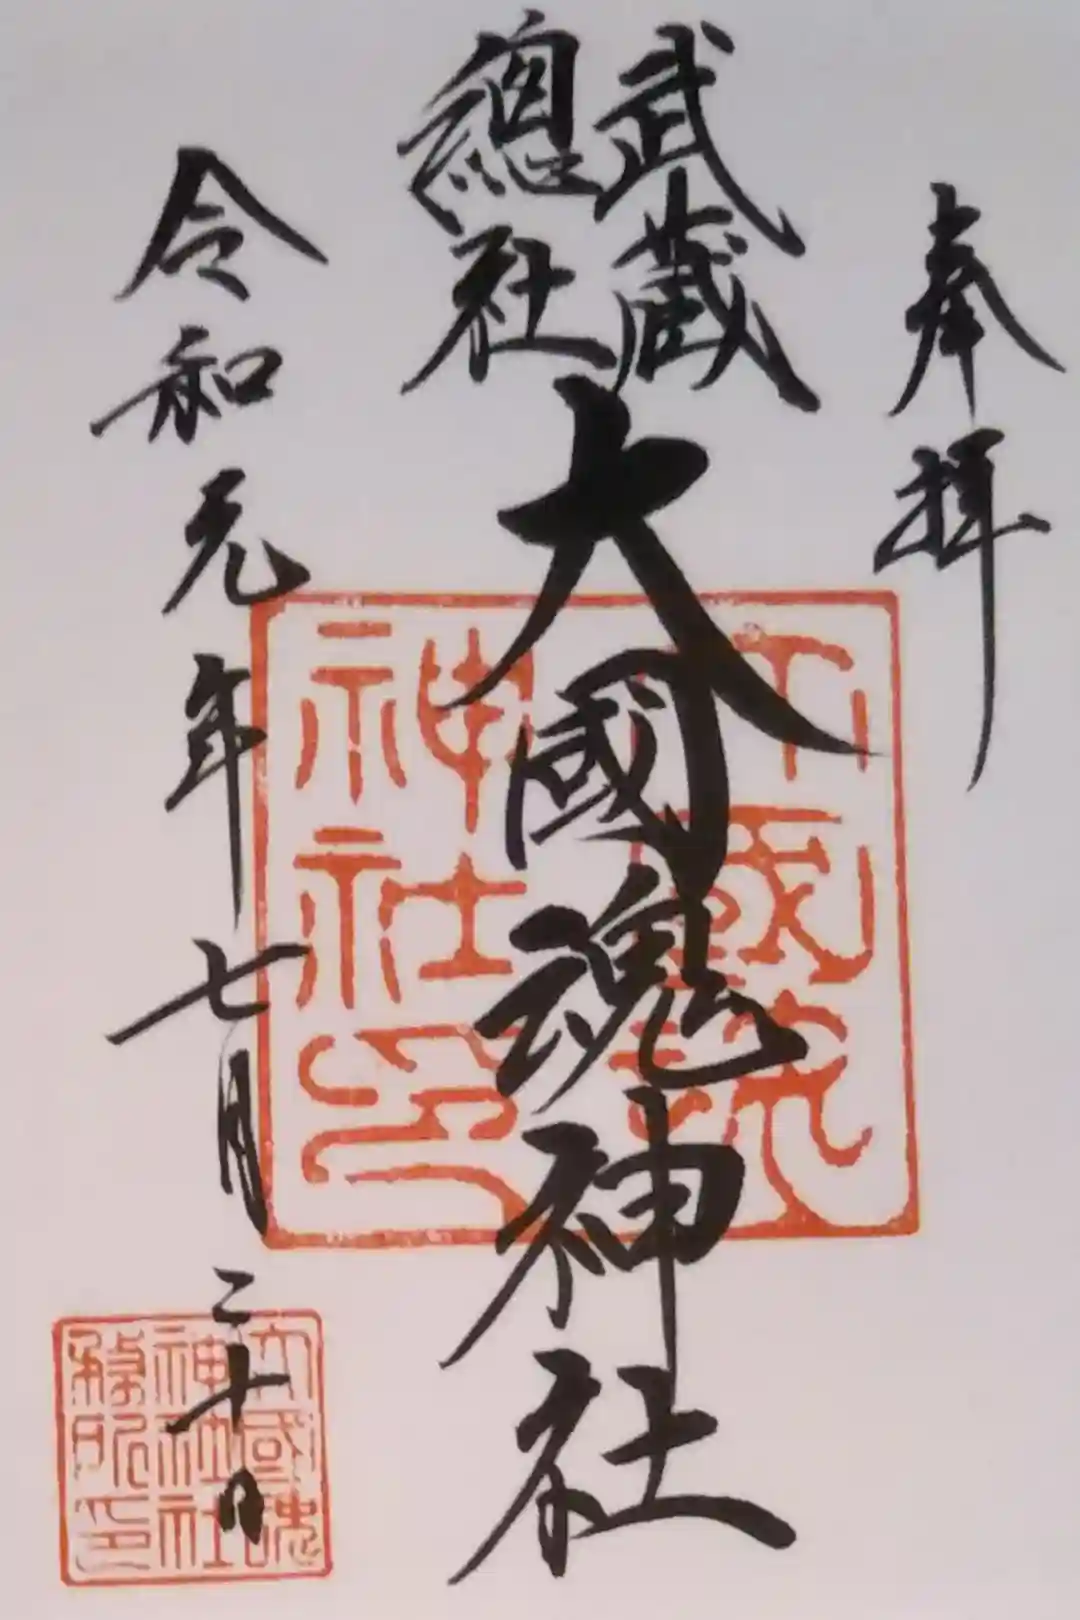 奉拝
武蔵
總社
大國魂神社
令和元年七月二十日
大國魂
神社印
大國魂
神社社
務所印